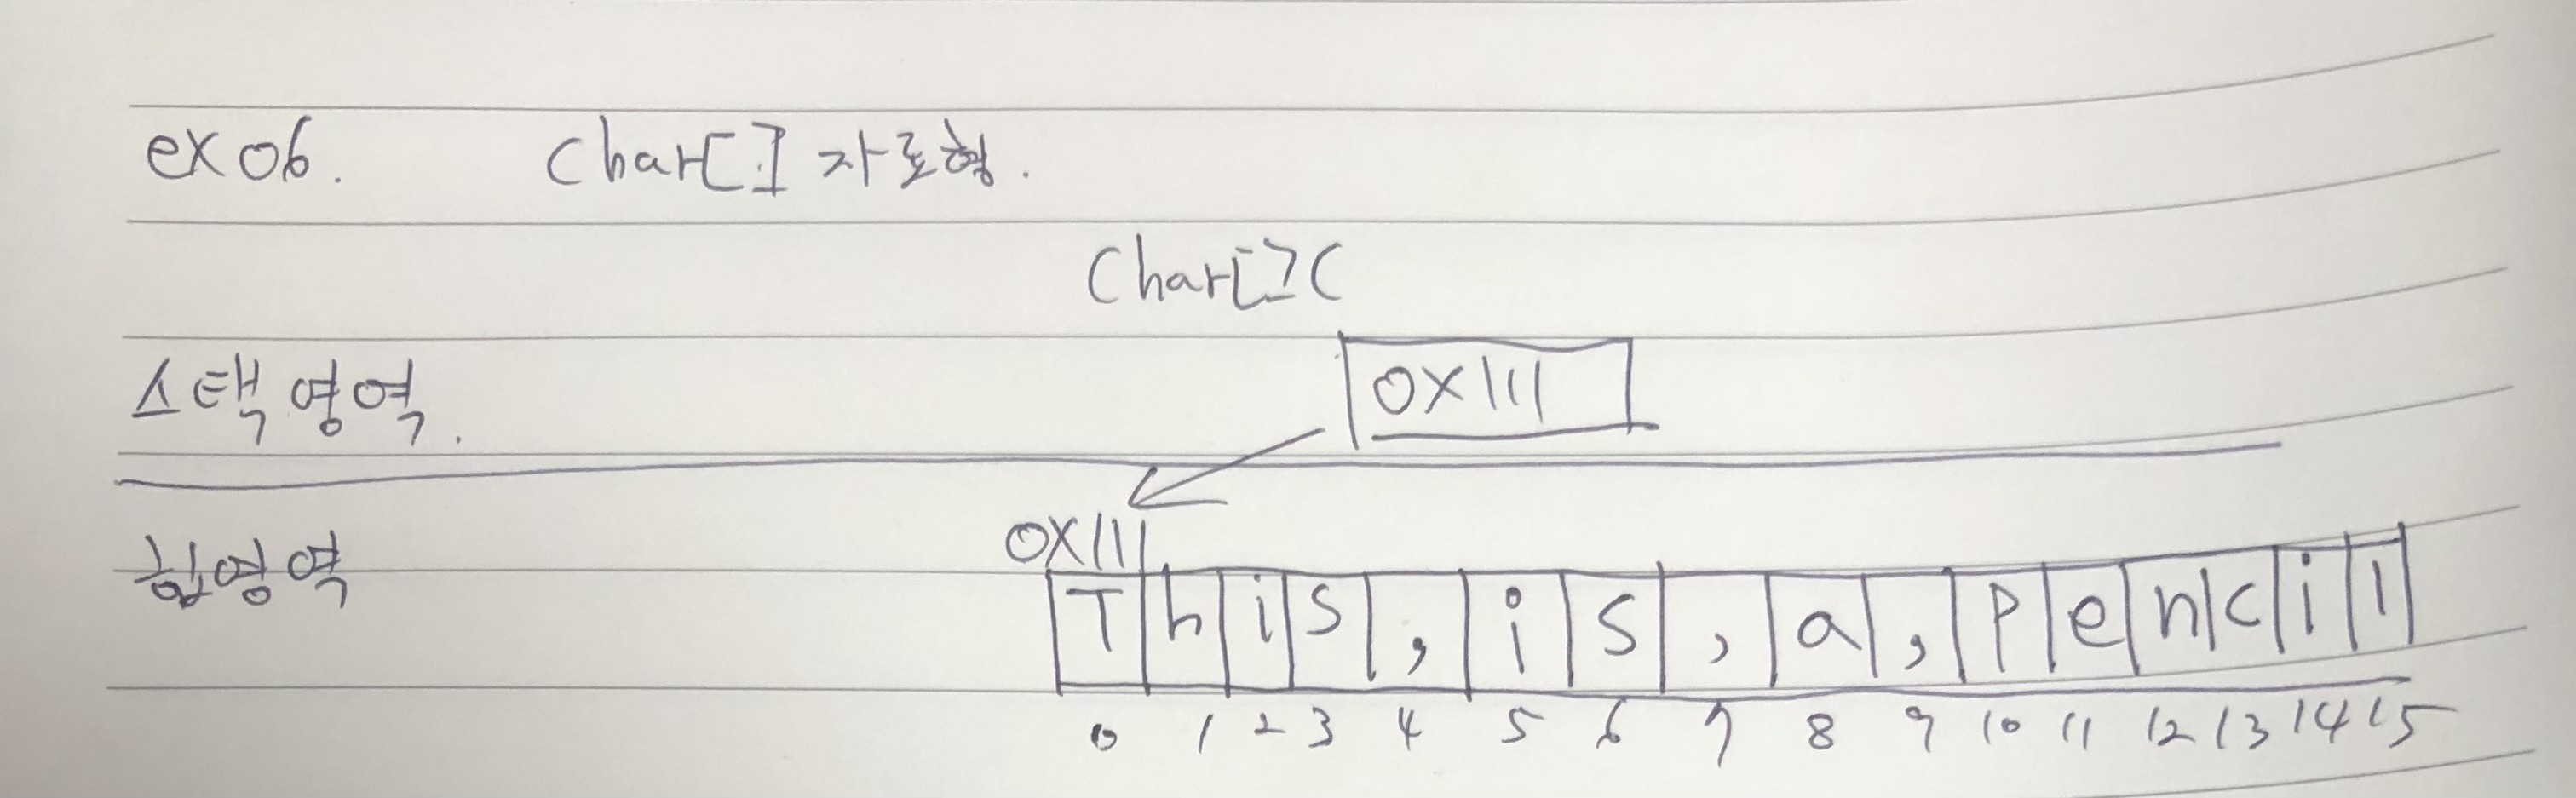 ex06. Char[] 자료형.
Char[] C
스택영역. 0X111
0X111
힙영역 T h i s , i s , a , P e n c i l
0 1 2 3 4 5 6 7 8 9 10 11 12 13 14 15